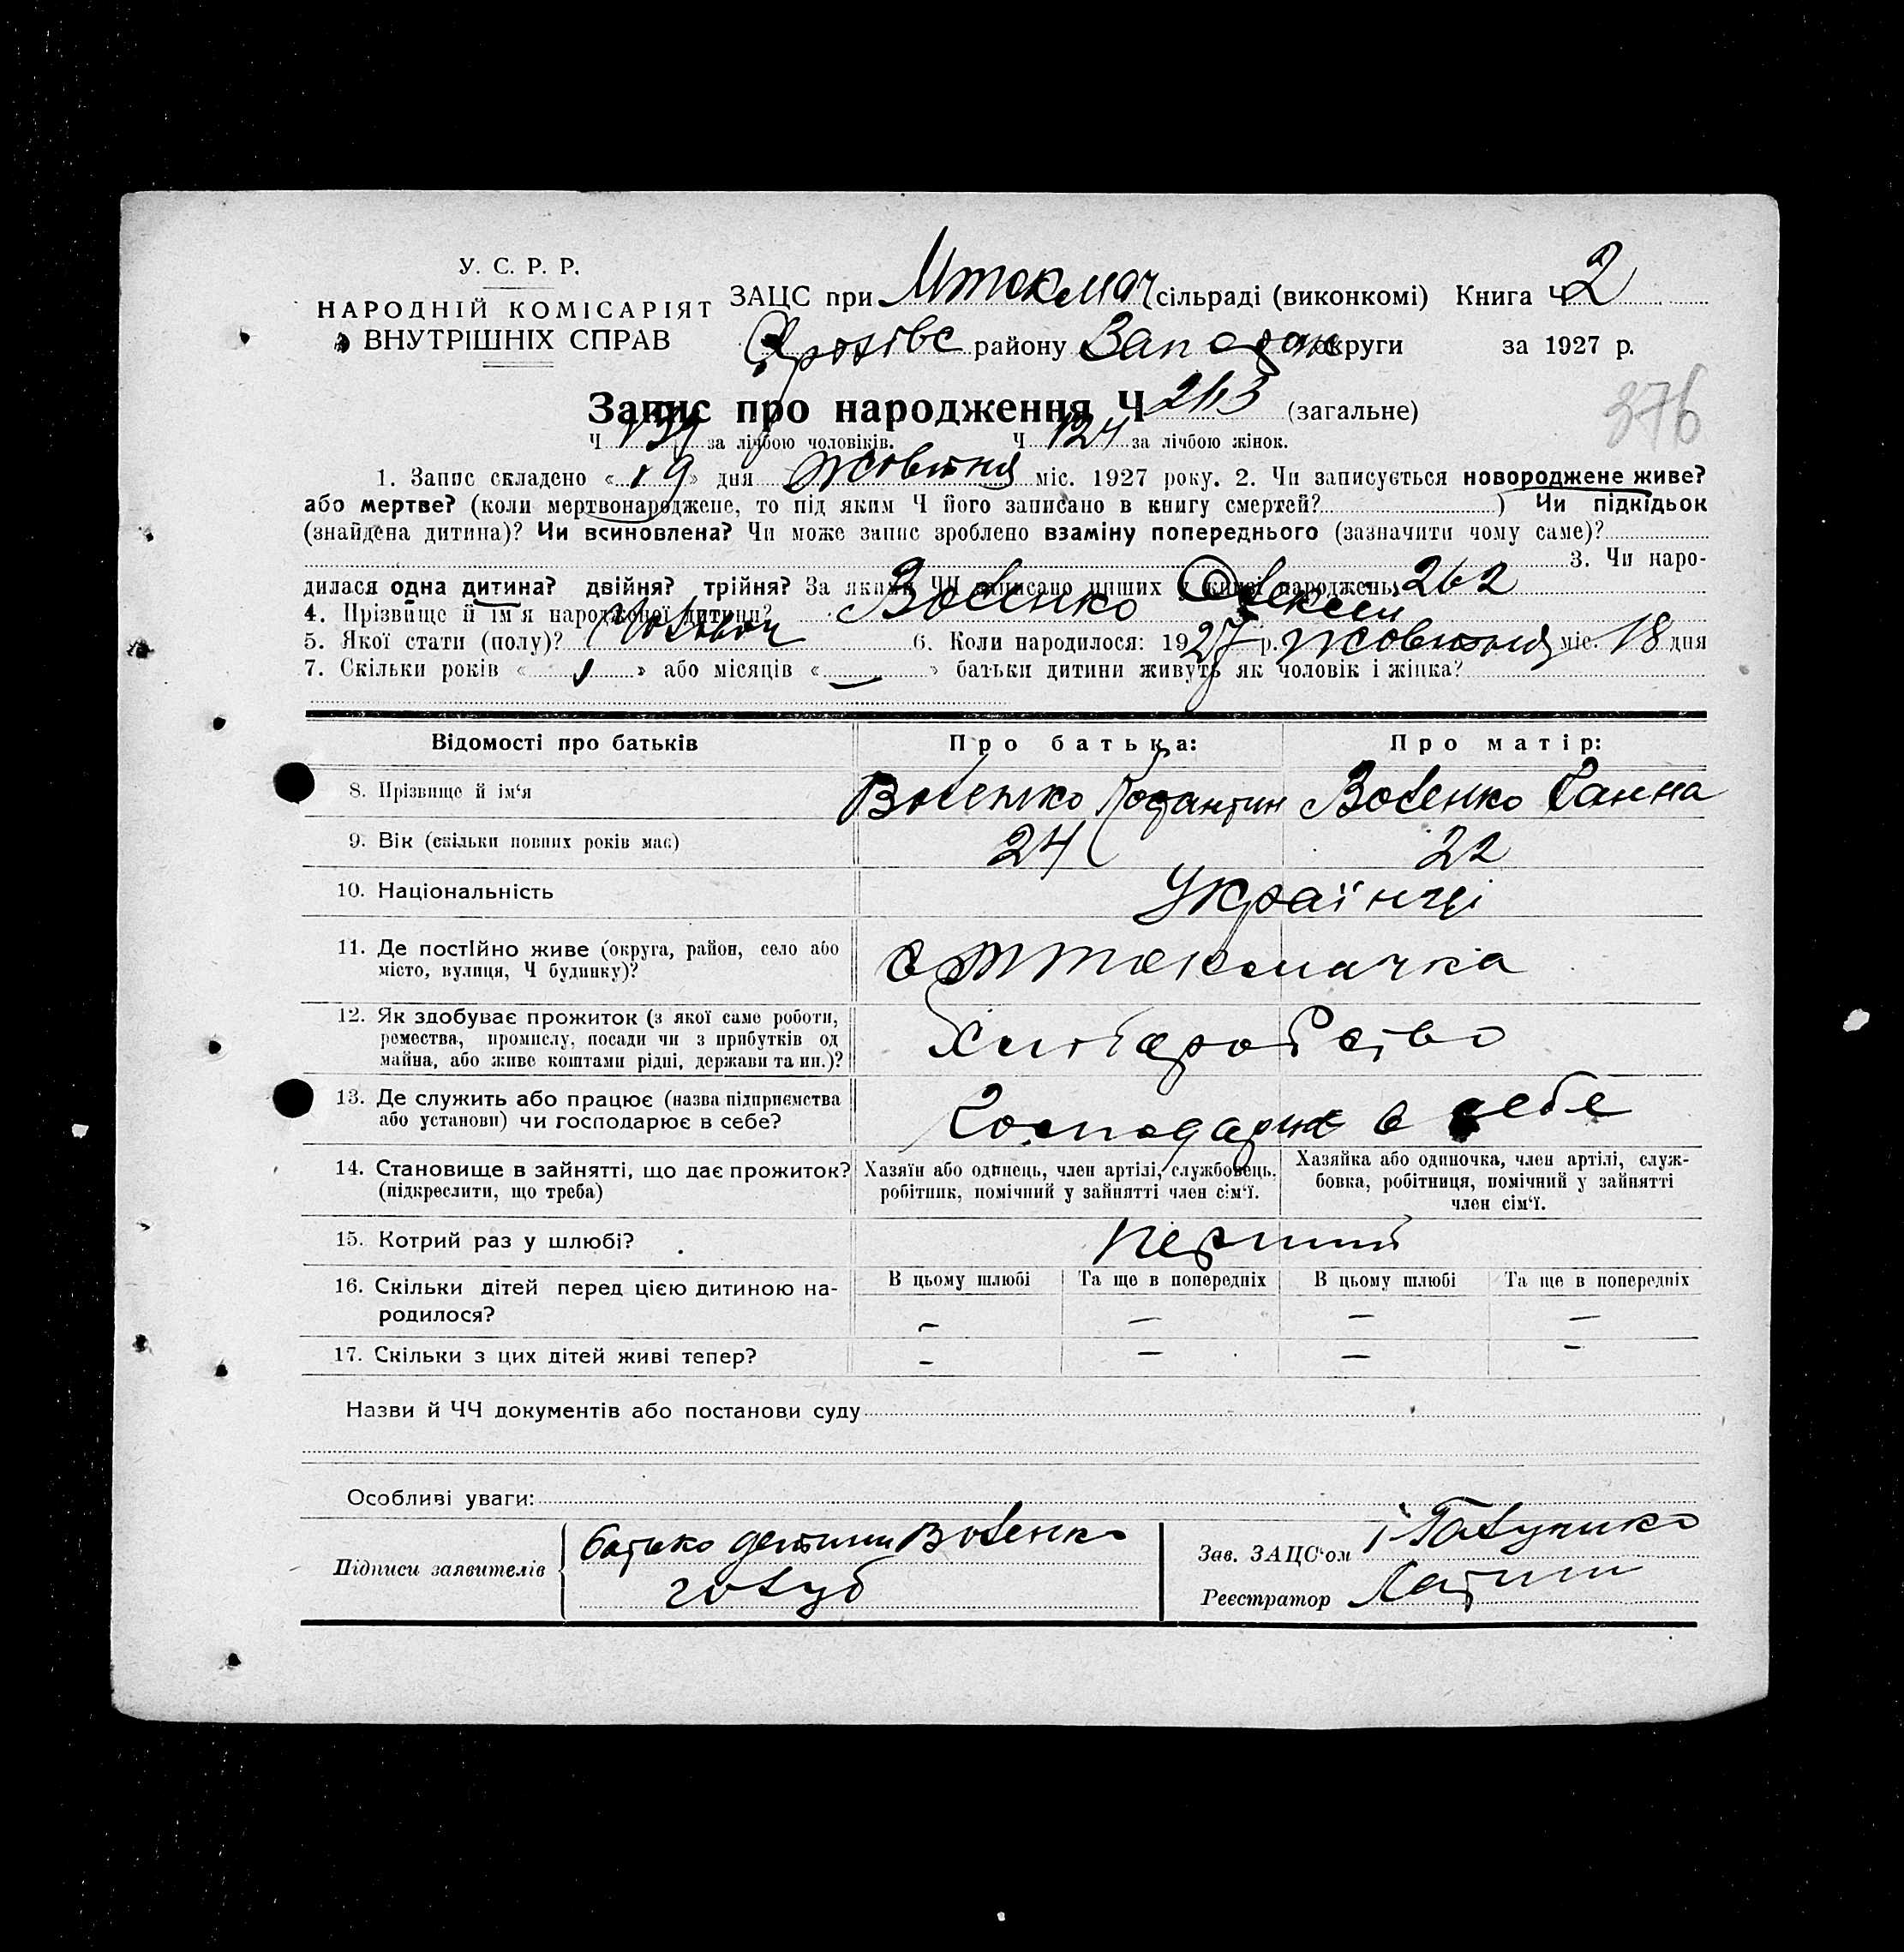 У. С. Р. Р.
НАРОДНІЙ КОМІСАРІЯТ
ВНУТРІШНІХ СПРАВ
ЗАЦС при Мтокмач сільраді (виконкомі) Книга Ч 2
району округи за 1927 р.
376
Запис про народження Ч (загальне)
Ч 139 за лічбою чоловіків. Ч 124 за лічбою жінок.
1. Запис складено « 19 » дня жовтня міс. 1927 року. 2. Чи записується новороджене живе?
або мертве? (коли мертвонароджене, то під яким Ч його записано в книгу смертей? ) Чи підкідьок
(знайдена дитина)? Чи всиновлена? Чи може запис зроблено взаміну попереднього (зазначити чому саме)?
3. Чи наро-
дилася одна дитина? двійня? трійня? За якими ЧЧ записано инших у книзі народжень 262
4. Прізвище й ім'я народженої дитини? Воленко Олексій
5. Якої стати (полу)? 6. Коли народилося: 1927 р. жовтня міс. 18 дня
7. Скільки років « 1 » або місяців « — » батьки дитини живуть як чоловік і жінка?
Відомості про батьків Про батька: Про матір:
8. Прізвище й ім'я Воленко Костантин Воленко Ганна
9. Вік (скільки повних років має) 24 22
10. Національність Українці
11. Де постійно живе (округа, район, село або
місто, вулиця, Ч будинку)? с Мтокмачка
12. Як здобуває прожиток (з якої саме роботи,
ремества, промислу, посади чи з прибутків од
майна, або живе коштами рідні, держави та ин.)? Хліборобство
13. Де служить або працює (назва підприємства
або установи) чи господарює в себе? в себе
14. Становище в зайнятті, що дає прожиток?
(підкреслити, що треба)
Хазяїн або одинець, член артілі, службовець,
робітник, помічний у зайнятті член сім'ї.
Хазяйка або одиночка, член артілі, служ-
бовка, робітниця, помічний у зайнятті
член сім'ї.
15. Котрий раз у шлюбі? перший
16. Скільки дітей перед цією дитиною на-
родилося?
В цьому шлюбі Та ще в попередніх В цьому шлюбі Та ще в попередніх
— — — —
17. Скільки з цих дітей живі тепер? — — — —
Назви й ЧЧ документів або постанови суду
Особливі уваги:
Підписи заявителів батько дитини Воленко
голуб
Зав. ЗАЦС'ом
Реєстратор